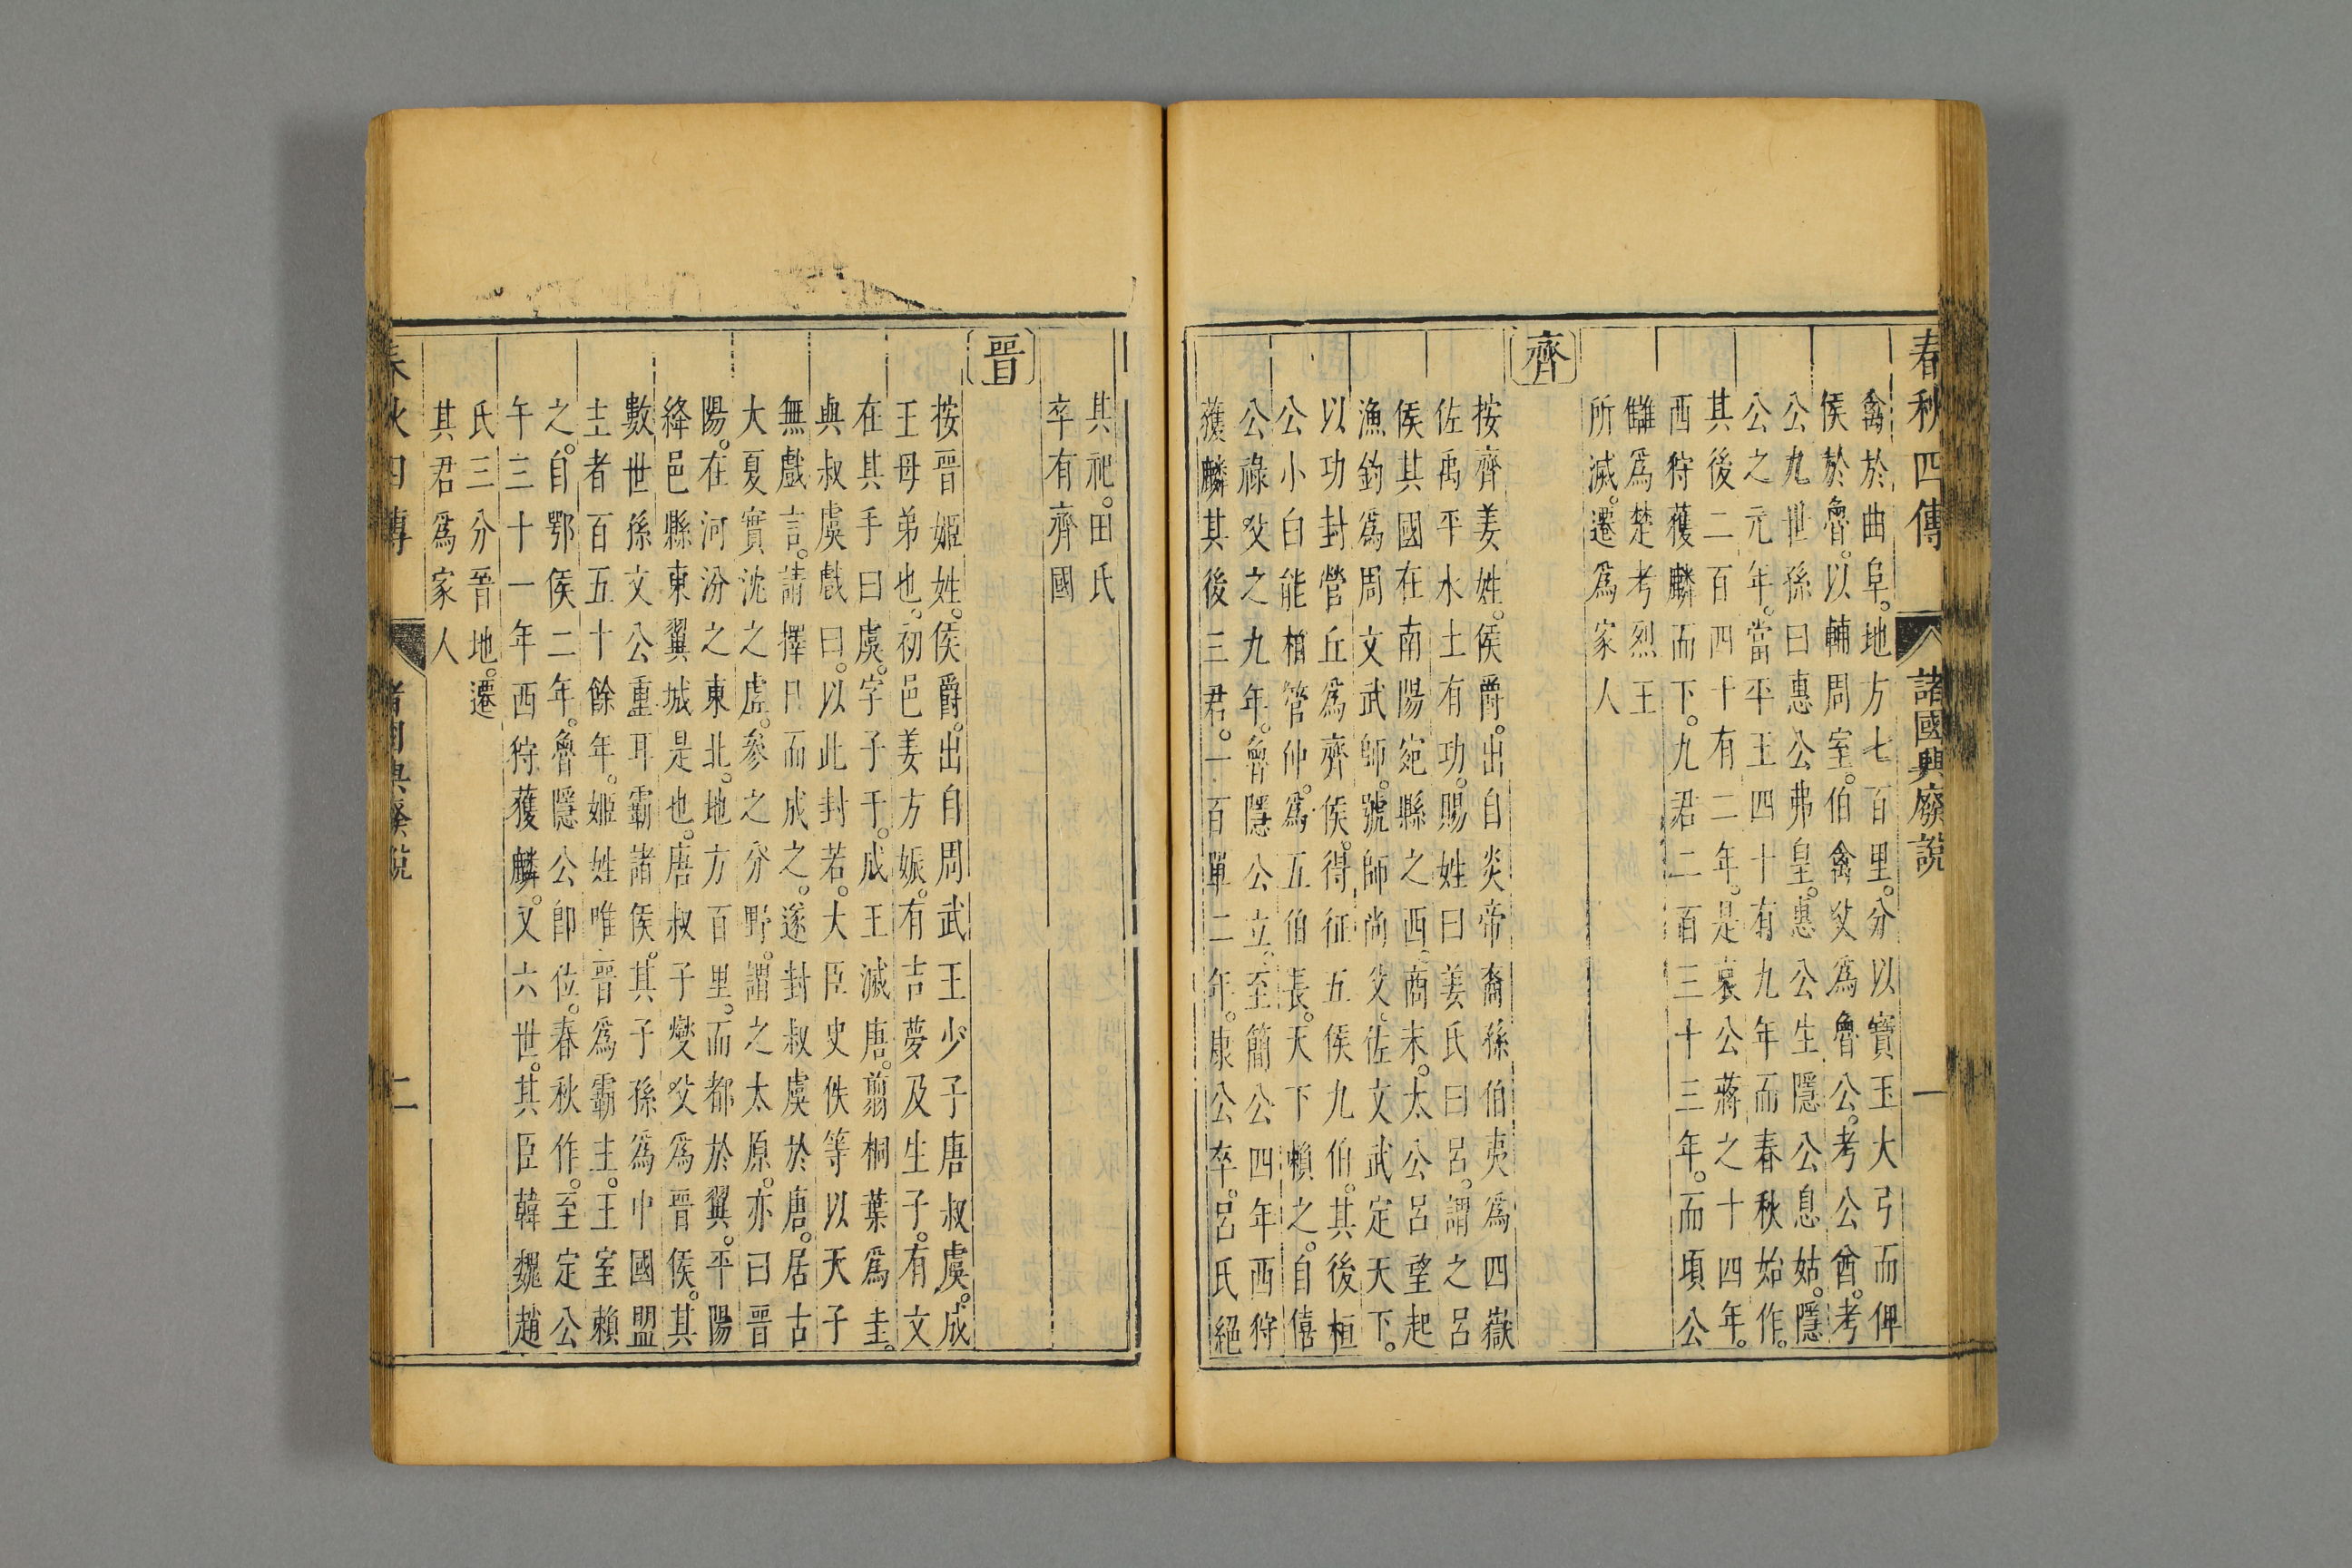 春秋四傳 諸國興廢說 一
禽於曲阜。地方七百里。分以寶玉大弓而俾
侯於魯。以輔周室。伯禽父為魯公。考公酋。考
公九世孫曰惠公弗皇。惠公生隱公息姑。隱
公之元年。當平王四十有九年而春秋始作。
其後二百四十有二年。是哀公蔣之十四年。
西狩獲麟而下。九君二百三十三年。而頃公
讎爲楚考烈王
所滅。遷爲家人
齊
按齊姜姓。侯爵。出自炎帝裔孫伯夷爲四嶽
佐禹平水土有功。賜姓曰姜氏曰呂。謂之呂
侯其國在南陽宛縣之西。商末。太公呂望起
漁釣爲周文武師。號師尚父。佐文武定天下。
以功封營丘爲齊侯。得征五侯九伯。其後桓
公小白能相管仲。爲五伯長。天下賴之。自僖
公祿父之九年。魯隱公立。至簡公四年西狩
獲麟其後三君。一百單二年。康公卒。呂氏絕
其祀。田氏
卒有齊國
晉
按晉姬姓。侯爵。出自周武王少子唐叔虞。成
王母弟也。初邑姜方娠。有吉夢及生子。有文
在其手曰虞。字子于。成王滅唐。翦桐葉爲圭。
與叔虞戲曰。以此封若。大臣史佚等以天子
無戲言。請擇日而成之。遂封叔虞於唐。居古
大夏實沈之虛。參之分野。謂之太原。亦曰晉
陽。在河汾之東北。地方百里。而都於翼。平陽
絳邑縣東翼城是也。唐叔子燮父爲晉侯。其
數世孫文公重耳霸諸侯。其子孫爲中國盟
主者百五十餘年。姬姓唯晉爲霸主。王室賴
之。自鄂侯二年。魯隱公卽位。春秋作。至定公
午三十一年西狩獲麟。又六世。其臣韓魏趙
氏三分晉地。遷
其君爲家人